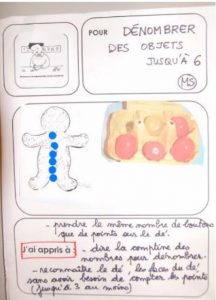 POUR
DÉNOMBRER
DES OBJETS
JUSQU'À 6
MS
- prendre le même nombre de boutons
que de points sur le dé.
J'ai appris à :
- dire la comptine des
nombres pour dénombrer.
- reconnaître le dé / les faces du dé
sans avoir besoin de compter les points
(jusqu'à 3 au moins)